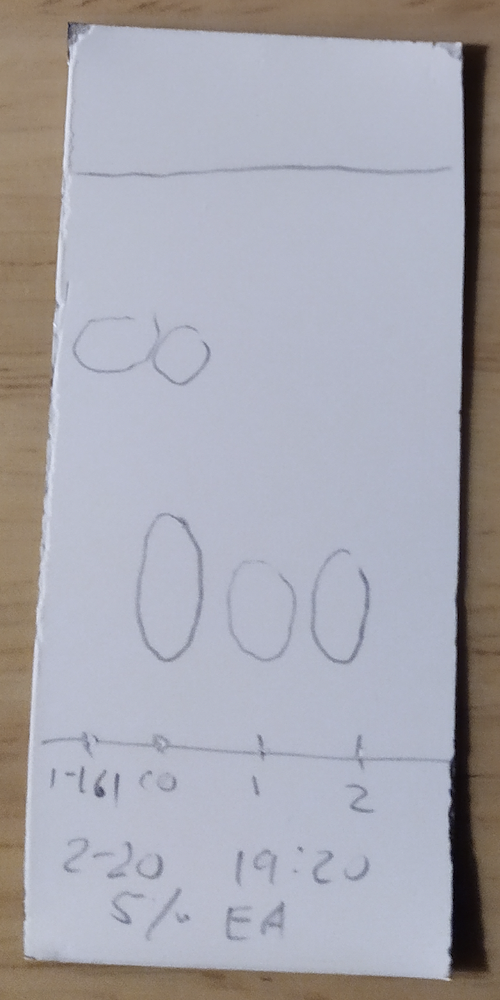 1-161 co 1 2
2-20 19:20
5% EA